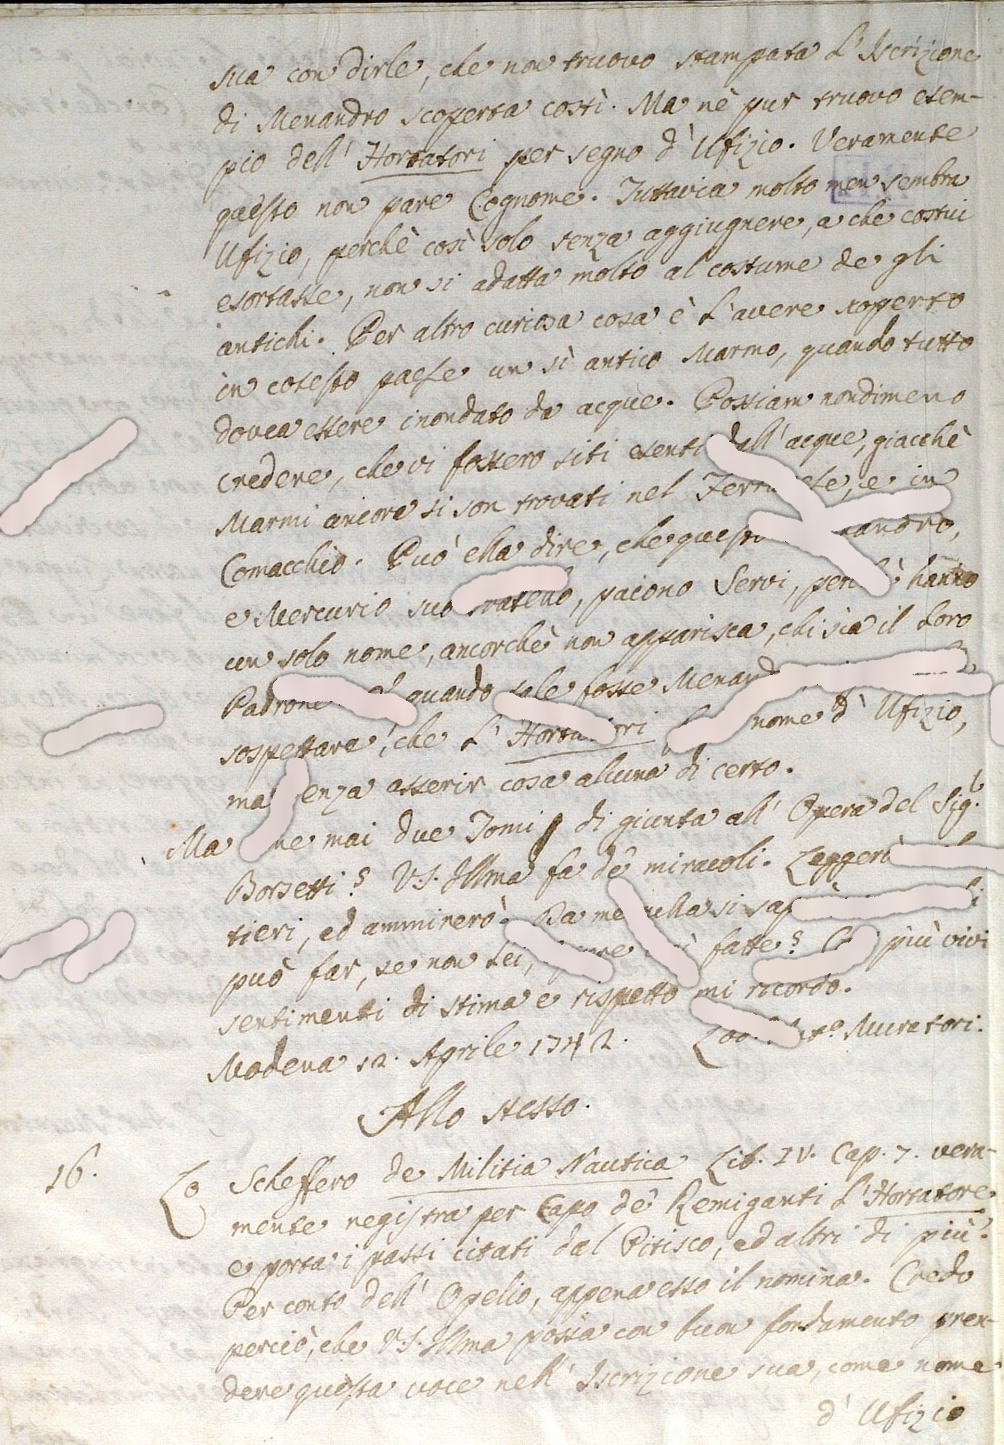 sua con dirle, che non truovo stampata l'Iscrizione
di Menandro scoperta costì. Ma nè pur truovo esem-
pio dell' Hortatori per segno d'Ufizio. Veramente
questo non pare Cognome. Tuttavia molto men sembra
Ufizio, perchè così solo senza aggiugnere, a che costui
esortasse, non si adatta molto al costume de gli
antichi. Per altro curiosa cosa è l'avere scoperto
in cotesto paese un sì antico Marmo, quando tutto
dovea essere inondato da acque. Possiam nondimeno
credere, che vi fossero siti esenti dall' acque, giacchè
Marmi ancora si son trovati nel e in
Comacchio. Può ella dire, che
e Mercurio suo paiono Servi, perchè hanno
un solo nome, ancorchè non apparisca, chi sia il loro
quando tale fosse
sospettare, che l' nome d'Ufizio,
ma senza asserir cosa alcuna di certo.
Ma mai due Tomi di giunta all' Opera del Sig.r
Borsetti? V.S. Illma fa de' miracoli. Leggerò
tieri, ed ammirerò. Da me nulla si
può far, se non Lei, fatte? più vivi
sentimenti di stima e rispetto mi ricordo.
Modena 12. Aprile 1742. Muratori.
Allo stesso.
16. Lo Scheffero de Militia Nautica Lib. IV. Cap. 7. vera-
mente registra per Capo de' Remiganti l'Hortatore
e porta i passi citati dal Pitisco, ed altri di più.
Per conto dell' Opelio, appena esso il nomina. Credo
perciò, che V.S. Illma possa con buon fondamento pren-
dere questa voce nell' Iscrizione sua, come nome
d' Ufizio